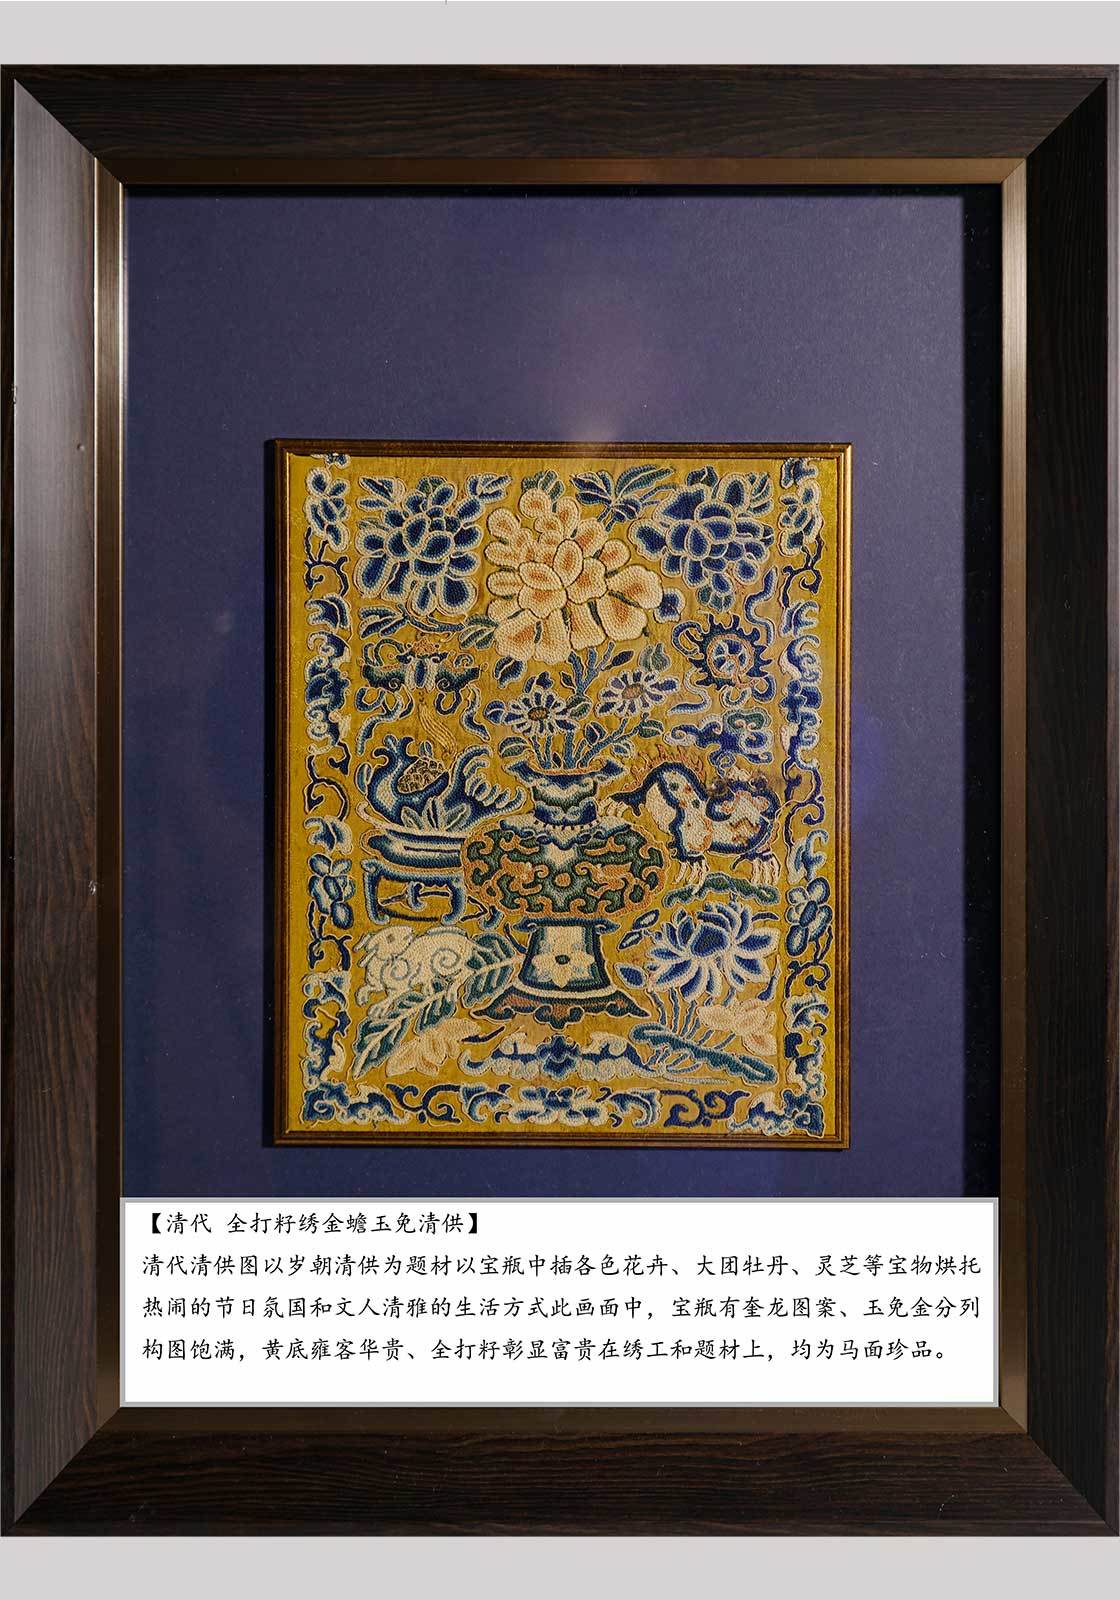 【清代 全打籽绣金蟾玉免清供】
清代清供图以岁朝清供为题材以宝瓶中插各色花卉、大团牡丹、灵芝等宝物烘托
热闹的节日氛国和文人清雅的生活方式此画面中，宝瓶有奎龙图案、玉免金分列
构图饱满，黄底雍容华贵、全打籽彰显富贵在绣工和题材上，均为马面珍品。